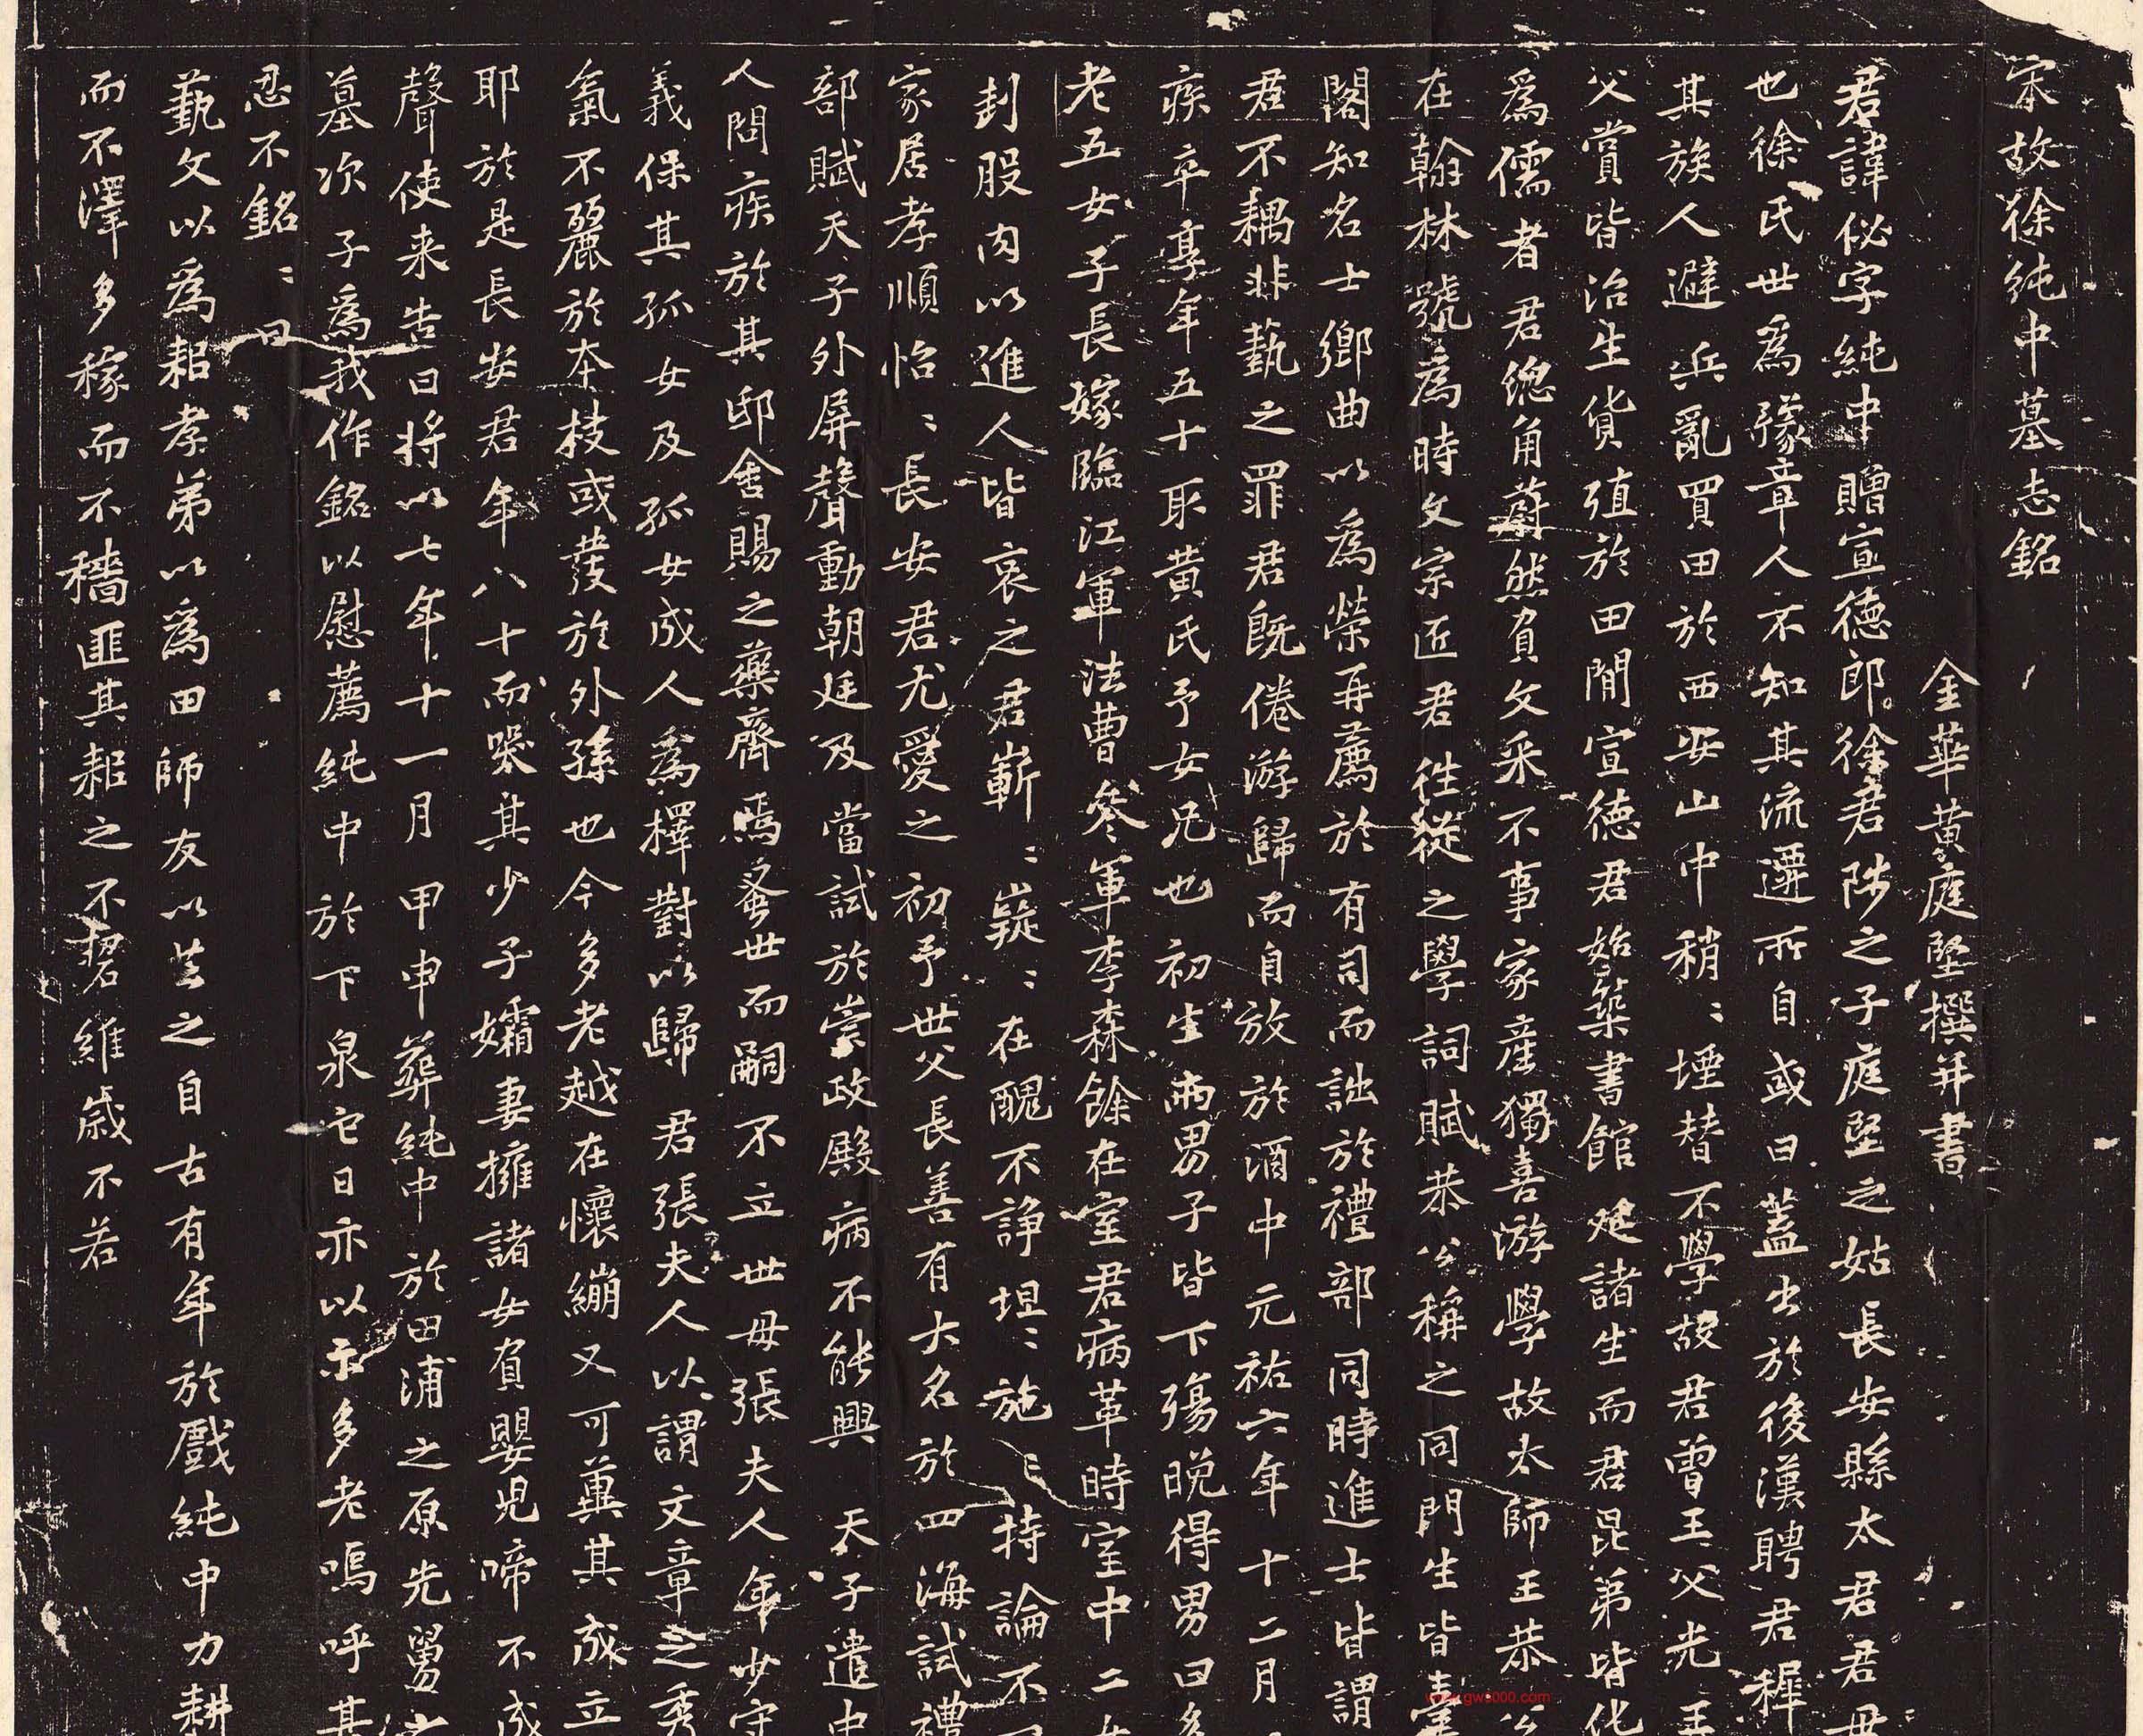 宋故徐純中墓志銘
金華黄庭堅撰并書
君諱佖字純中贈宣德郎徐君陟之子庭堅之姑長安縣太君君
也徐氏世爲豫章人不知其流遷所自或曰蓋出於後漢聘君穉
其族人避兵亂買田於西安山中稍〻堙替不學故君曾王父光王
父賞皆治生貨殖於田閒宣德君始築書館延諸生而君昆弟皆化
爲儒者君緫角蔚然負文采不事家產獨喜游學故太師王恭公
在翰林號爲時文宗匠君徃從之學詞賦恭公稱之同門生皆
閣知名士鄉曲以爲榮再薦於有司而詘於禮部同時進士皆謂
君不耦非藝之罪君旣倦游歸而自放於酒中元祐六年十二月
疾卒享年五十取黄氏予女兄也初生兩男子皆下殤晚得男曰多
老五女子長嫁臨江軍法曹叅軍李森餘在室君病革時室中二女
刲股肉以進人皆哀之君嶄〻嶷〻在醜不諍坦〻施〻持論不
家居孝順怡〻長安君尤愛之初予世父長善有大名於四海試禮
部賦天子外屏聲動朝廷及當試於崇政殿病不能興天子遣中
人問疾於其邸舍賜之藥齊焉蚤世而嗣不立世母張夫人年少守
義保其孤女及孤女成人爲擇對以歸君張夫人以謂文章之秀
氣不麗於本枝或發於外孫也今多老越在懷繃又可冀其成立
耶於是長安君年八十而哭其少子孀妻擁諸女負嬰兒啼不成
聲使来告曰将以七年十一月甲申葬純中於田浦之原先舅
墓次子爲我作銘以慰薦純中於下泉它日亦以示多老嗚呼其
忍不銘〻曰
藝文以爲耜孝弟以爲田師友以芸之自古有年於戲純中力耕
而不澤多稼而不穡匪其耜之不䂮維歲不若
www.gws000.com